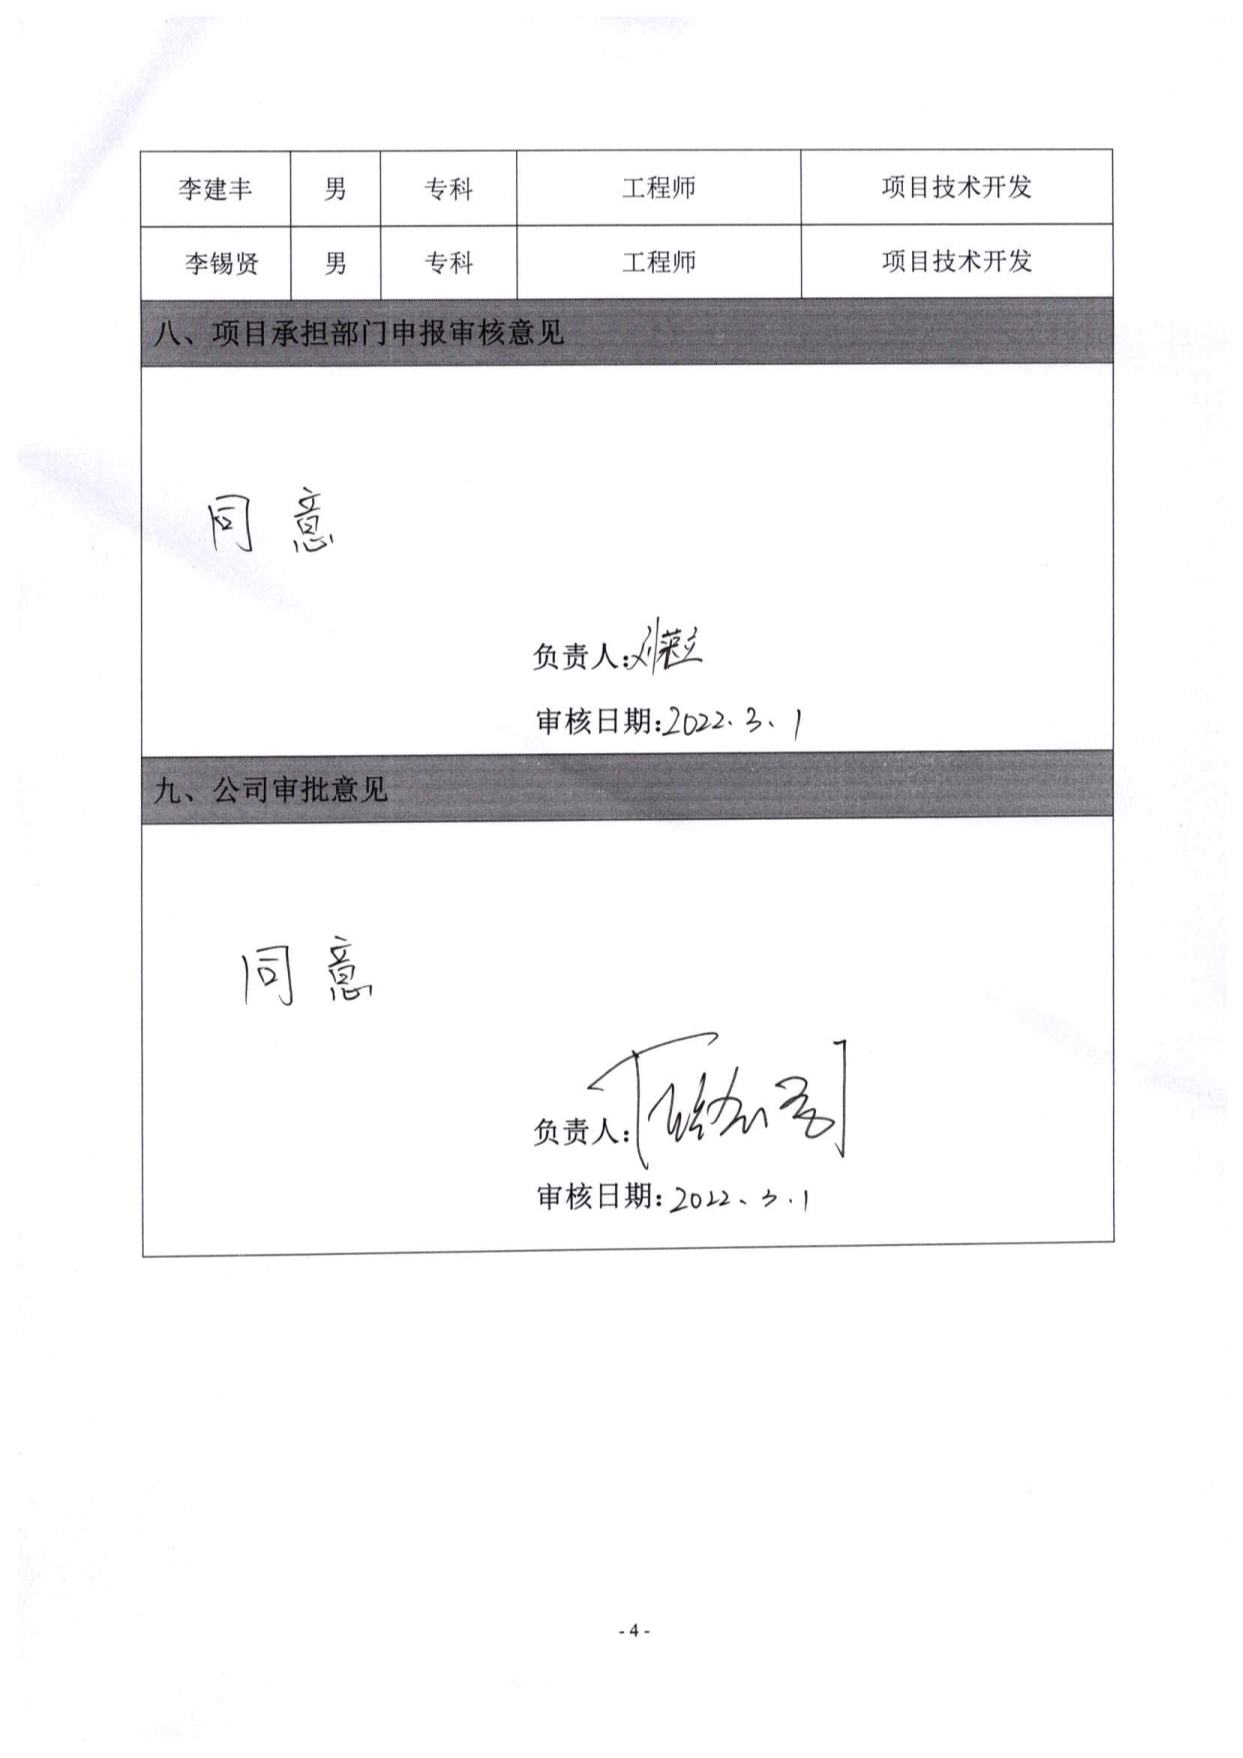 李建丰 男 专科 工程师 项目技术开发
李锡贤 男 专科 工程师 项目技术开发
八、项目承担部门申报审核意见
同意
负责人:
审核日期:2022.3、1
九、公司审批意见
同意
负责人:
审核日期:2022、3.1
- 4 -